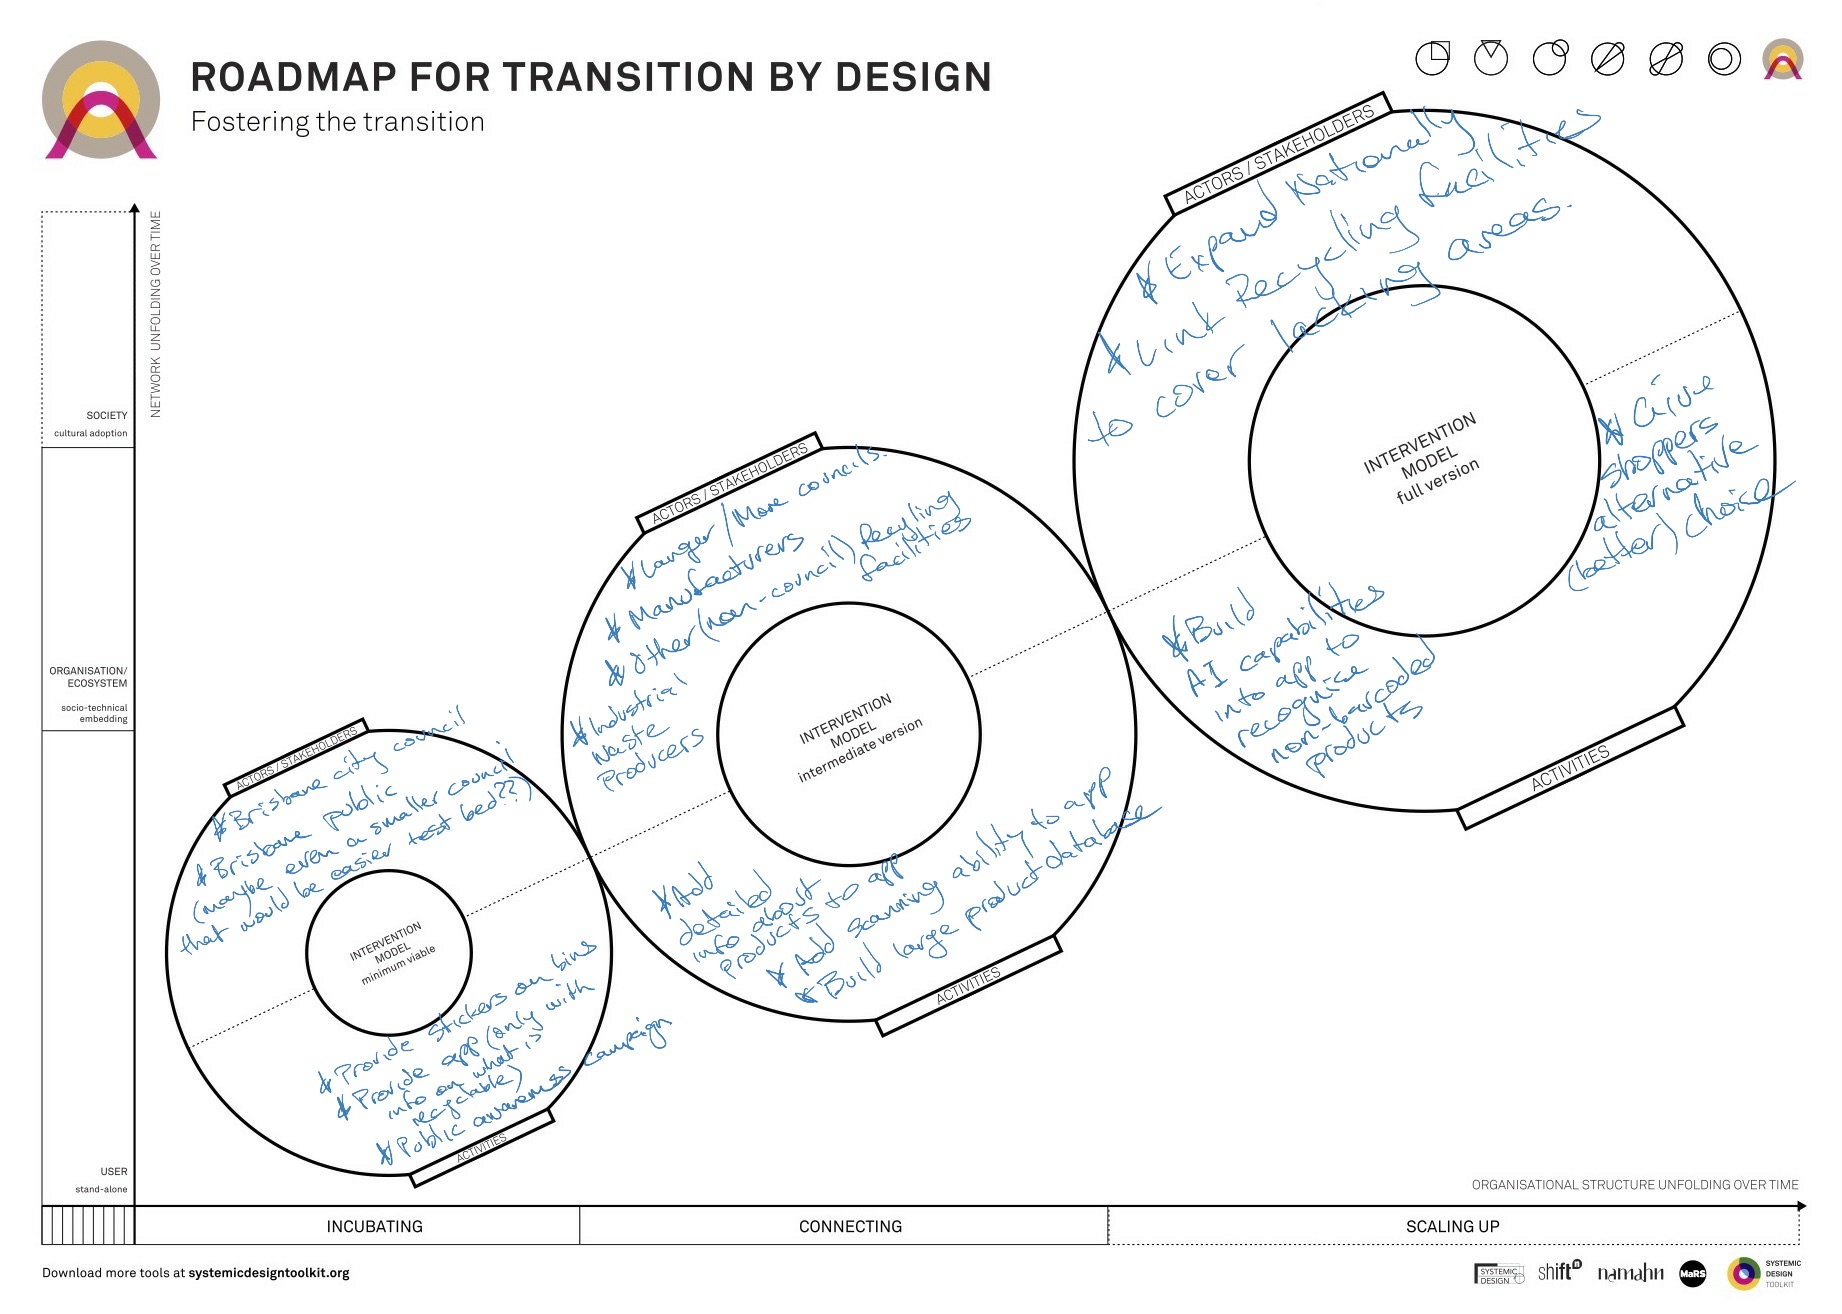 ROADMAP FOR TRANSITION BY DESIGN
Fostering the transition
NETWORK UNFOLDING OVER TIME
SOCIETY
cultural adoption
ORGANISATION/
ECOSYSTEM
socio-technical
embedding
USER
stand-alone
ACTORS / STAKEHOLDERS
* Brisbane city council
* Brisbane public
(maybe even a smaller council
that would be easier test bed??)
INTERVENTION
MODEL
minimum viable
* Provide stickers on bins
* Provide app (only with
info on what is
recyclable)
* Public awareness campaign
ACTIVITIES
ACTORS / STAKEHOLDERS
* Larger / More councils.
* Manufacturers
* Other (non-council) Recyling
facilities
* Industrial
Waste
Producers
INTERVENTION
MODEL
intermediate version
* Add
detailed
info about
products to app
* Add scanning ability to app
* Build large product database
ACTIVITIES
ACTORS / STAKEHOLDERS
* Expand Nationally
* Link Recycling facilities
to cover lacking areas.
INTERVENTION
MODEL
full version
* Give
shoppers
alternative
(better) choice
* Build
AI capabilities
into app to
recognise
non-barcoded
products
ACTIVITIES
ORGANISATIONAL STRUCTURE UNFOLDING OVER TIME
INCUBATING
CONNECTING
SCALING UP
Download more tools at systemicdesigntoolkit.org
SYSTEMIC
DESIGN
shiftn
namahn
MaRS
SYSTEMIC
DESIGN
TOOLKIT